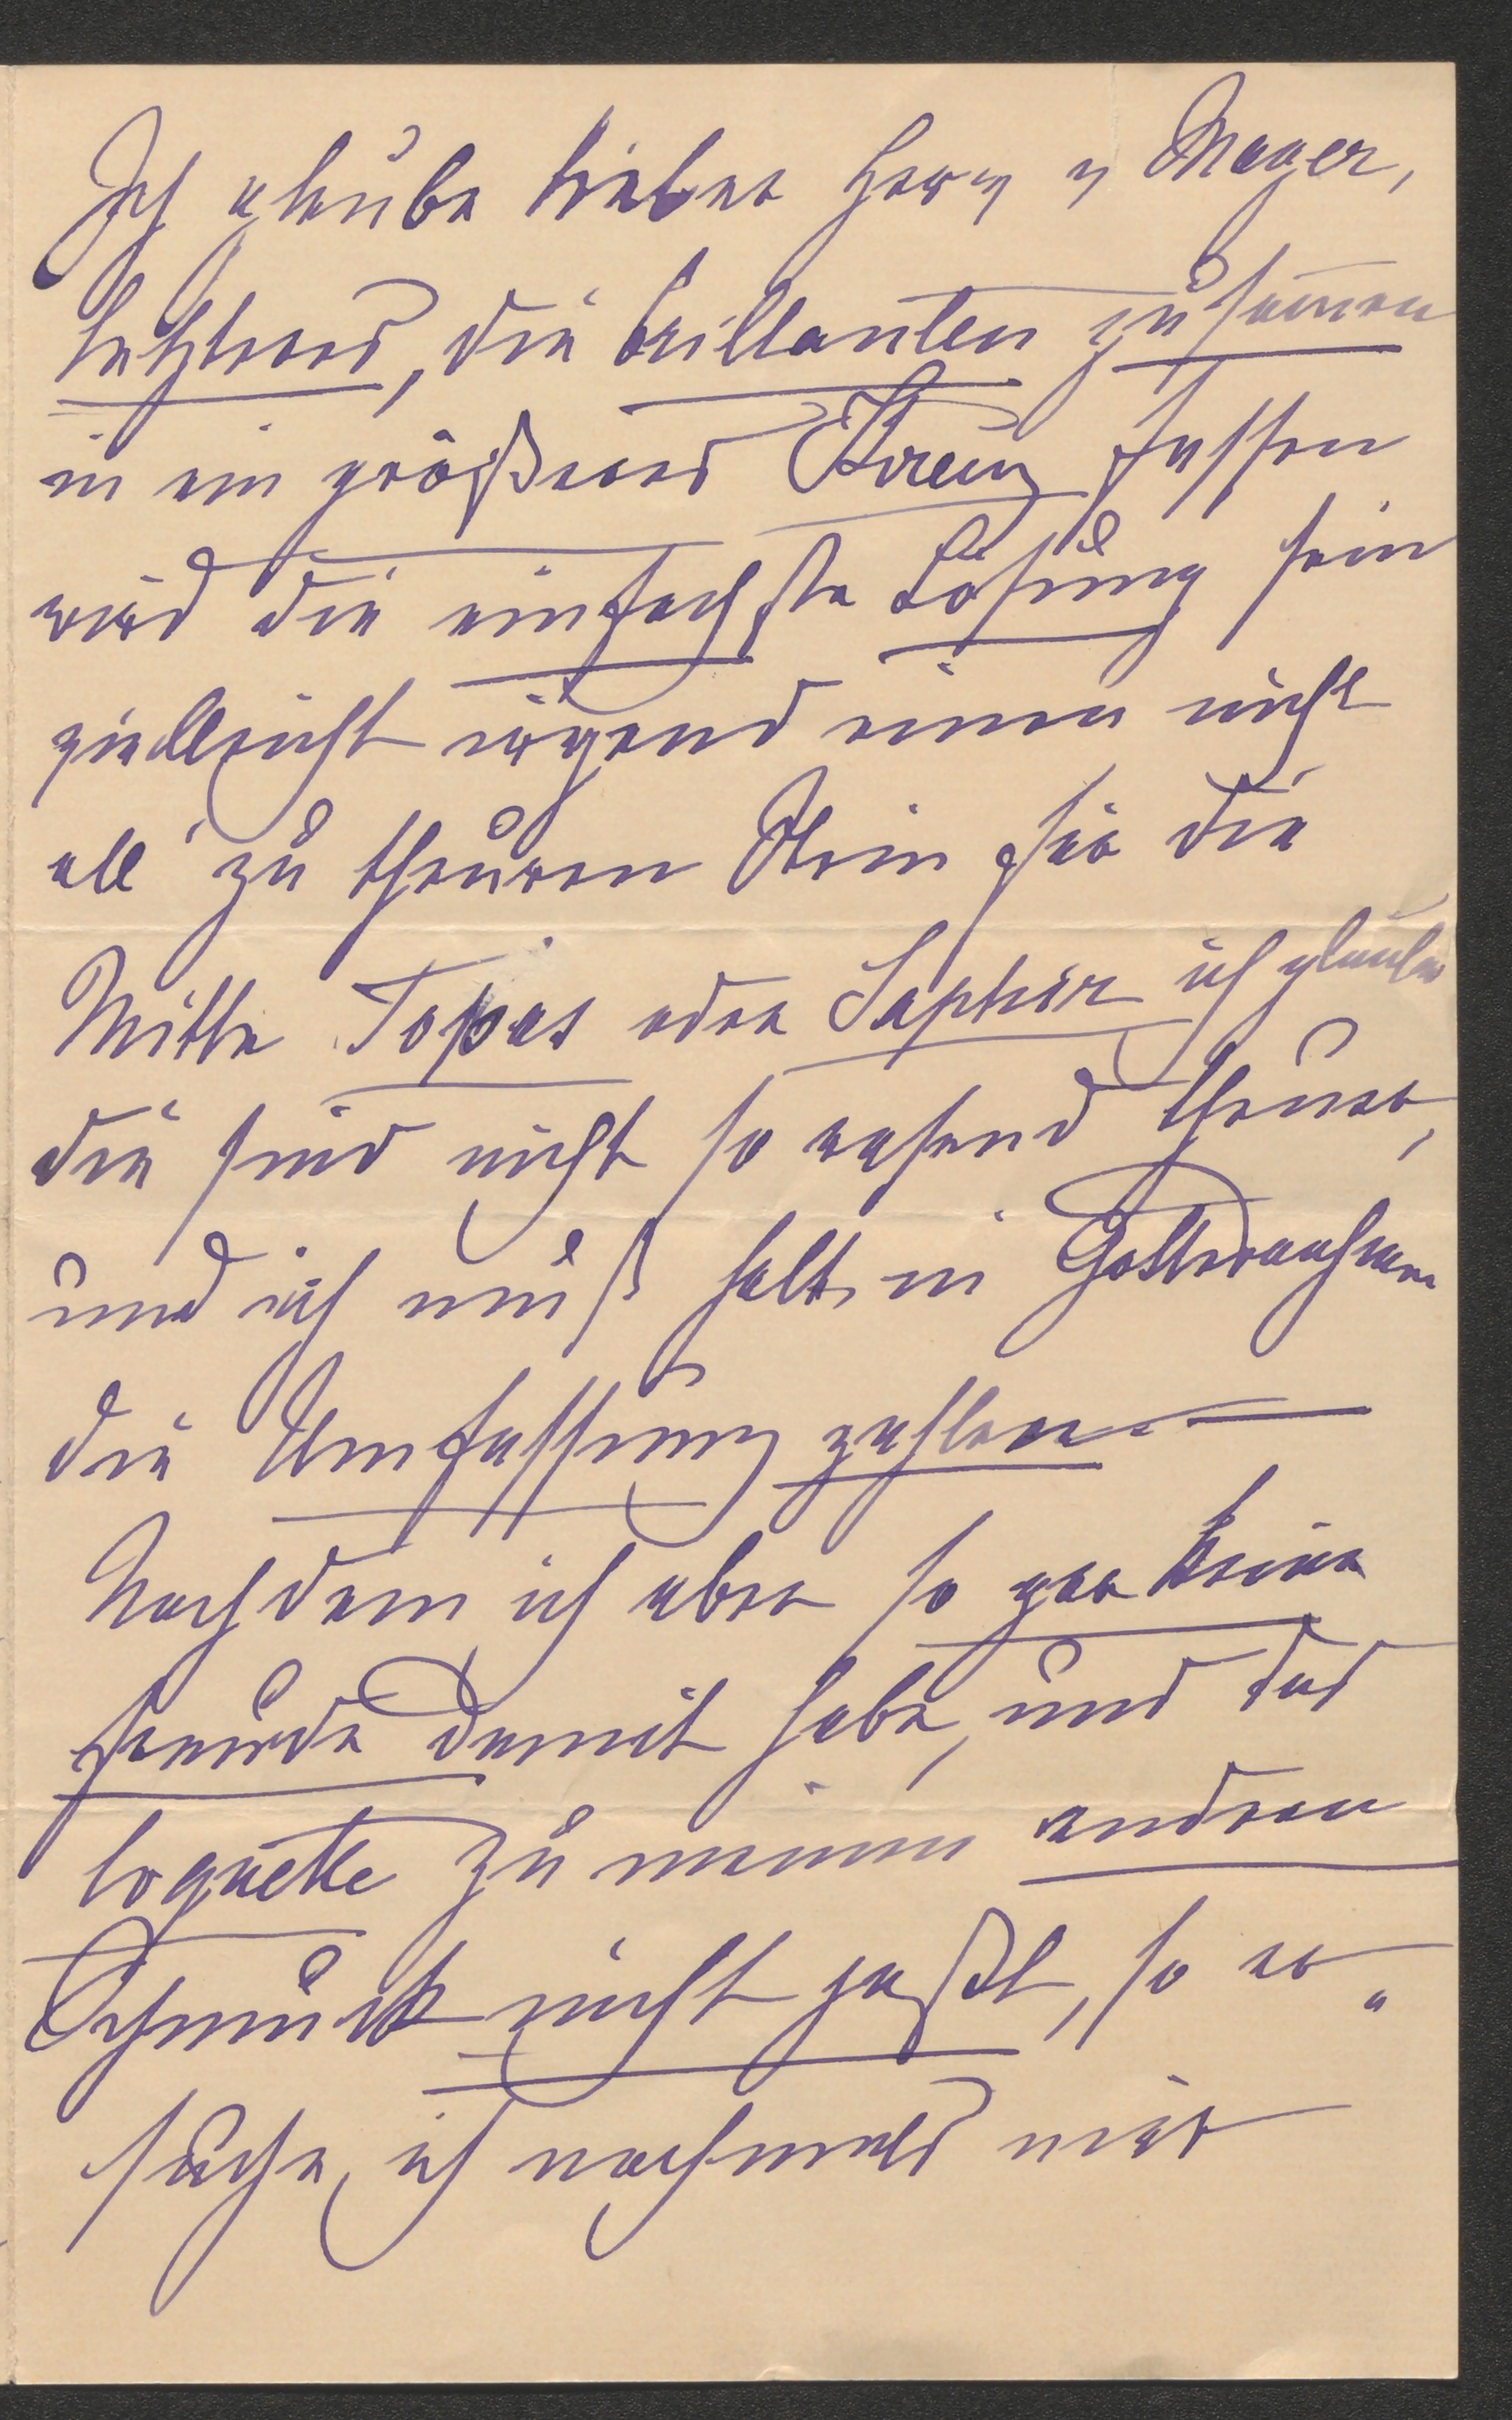 Ich glaube lieber Herr v Mayer,
letzteres, die brillanten zusam̅en
in ein größeres Kreuz fassen
wird die einfachste Lösung sein
vielleicht irgend einen nicht
all' zu theuren Stein für die
Mitte Topas oder Saphir ich glaube
die sind nicht so rasend theuer,
und ich muß halt in Gottesnahmen
die Umfassung zahlen —
Nachdem ich aber so gar keine
freude damit habe, und das
loquette zu meinem andren
Schmuck nicht paßt, so er„
suche ich nochmals mir